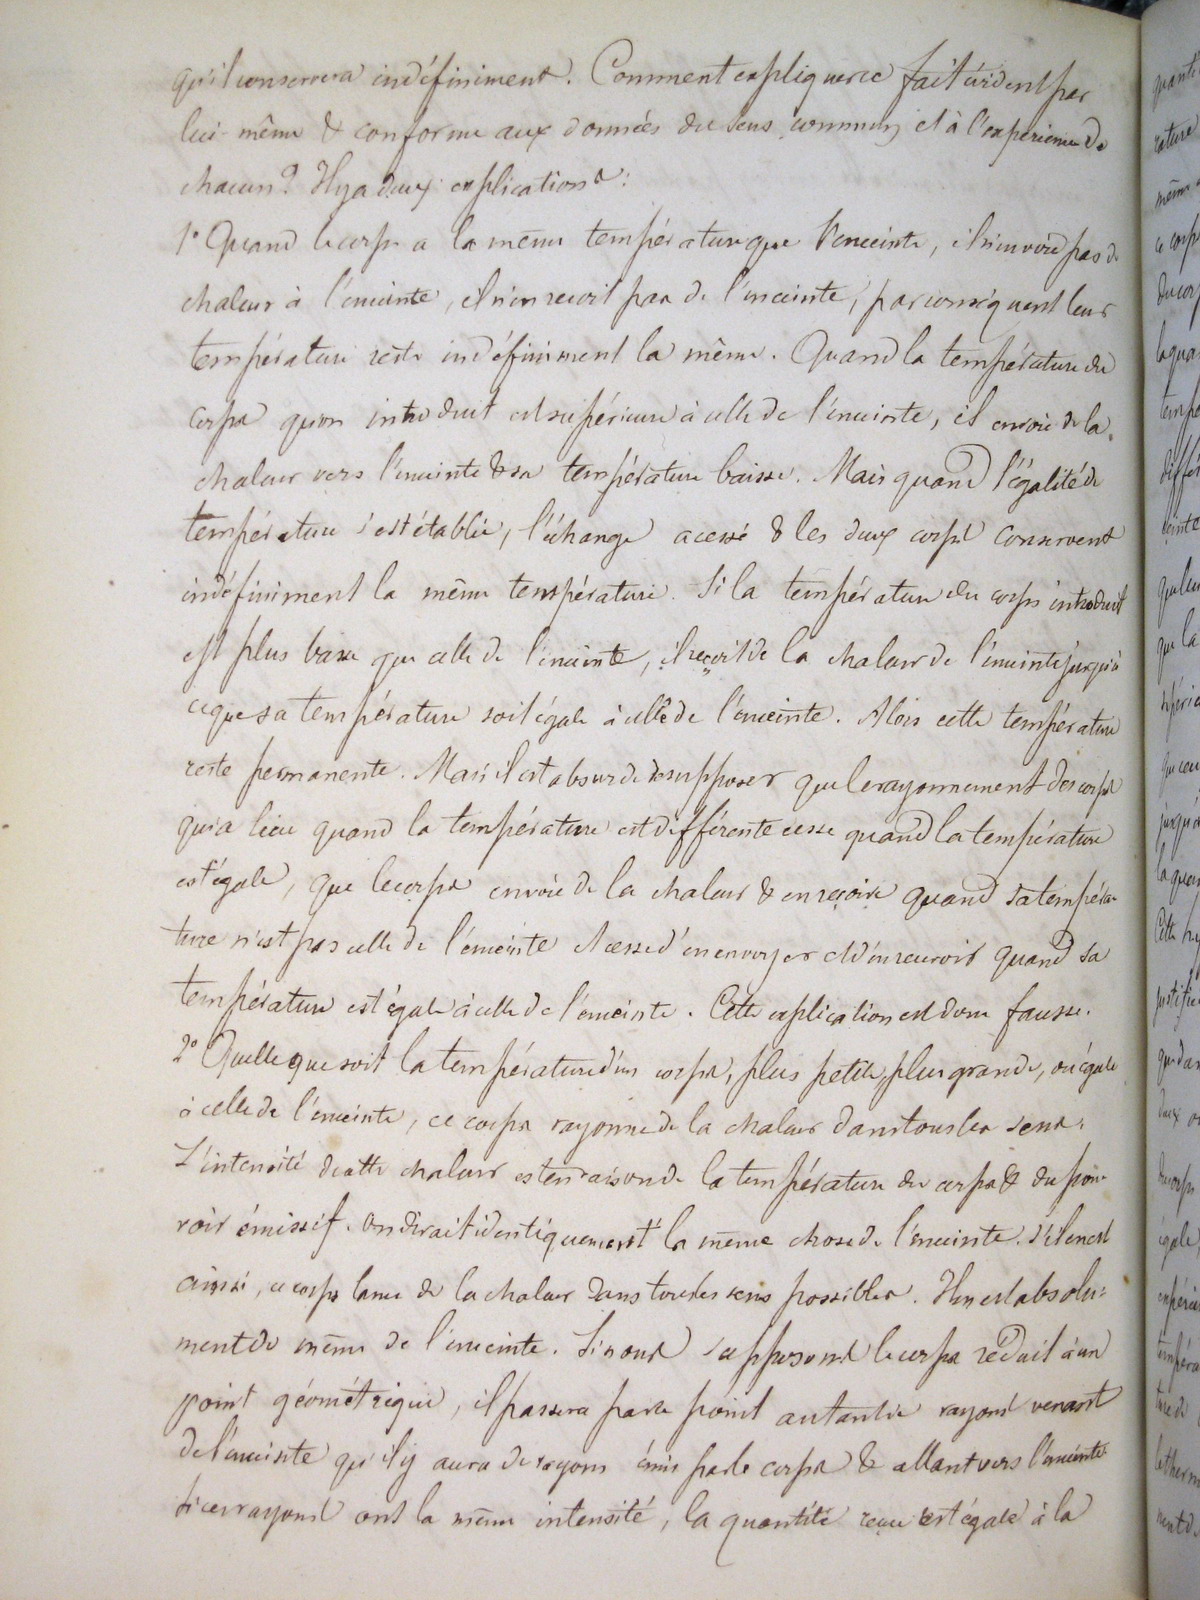 qu'il conservera indéfiniment. Comment expliquer ce fait évident par
lui-même & conforme aux données du sens commun et à l'expérience de
chacun? Il y a deux explications:
1° Quand le corps a la même température que l'enceinte, il n'envoie pas de
chaleur à l'enceinte, il n'en reçoit pas de l'enceinte, par conséquent leur
température reste indéfiniment la même. Quand la température du
corps qu'on introduit est supérieure à celle de l'enceinte, il envoie de la
chaleur vers l'enceinte & sa température baisse. Mais quand l'égalité de
température s'est établie, l'échange a cessé & les deux corps conservent
indéfiniment la même température. Si la température du corps introduit
est plus basse que celle de l'enceinte, il reçoit de la chaleur de l'enceinte jusqu'à
ce que sa température soit égale à celle de l'enceinte. Alors cette température
reste permanente. Mais il est absurde de supposer que le rayonnement des corps
qui a lieu quand la température est différente cesse quand la température
est égale, que le corps envoie de la chaleur & en reçoive quand sa tempéra-
ture n'est pas celle de l'enceinte & cesse d'en envoyer et d'en recevoir quand sa
température est égale à celle de l'enceinte. Cette explication est donc fausse.
2° Quelle que soit la température d'un corps, plus petite, plus grande, ou égale
à celle de l'enceinte, ce corps rayonne de la chaleur dans tous les sens.
L'intensité de cette chaleur est en raison de la température du corps & du pou-
voir émissif. On dirait identiquement la même chose de l'enceinte. S'il en est
ainsi, ce corps lance de la chaleur dans tous les sens possibles. Il en est absolu-
ment de même de l'enceinte. Si nous supposons le corps réduit à un
point géométrique, il passera par ce point autant de rayons venant
de l'enceinte qu'il y aura de rayons émis par le corps & allant vers l'enceinte
si ces rayons ont la même intensité, la quantité reçue est égale à la